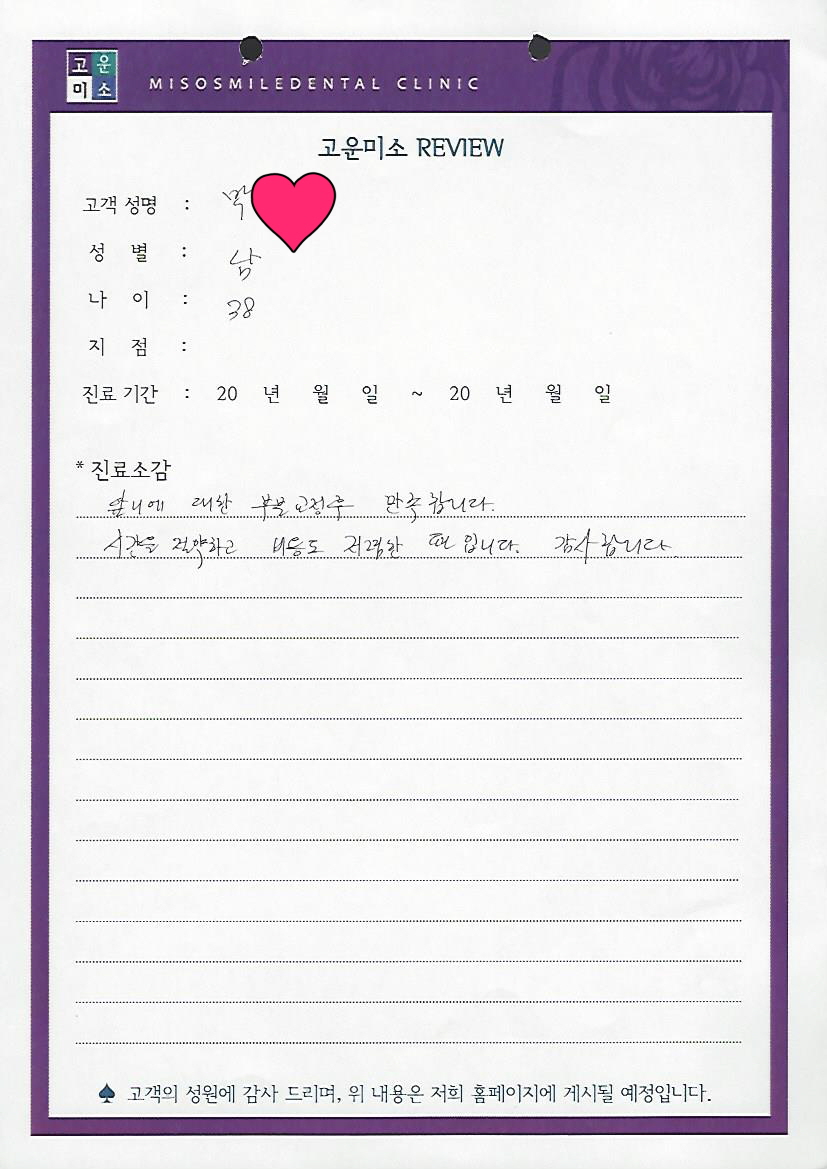 고운
미소
MISOSMILEDENTAL CLINIC
고운미소 REVIEW
고객 성명 : 박
성 별 : 남
나 이 : 38
지 점 :
진료 기간 : 20 년 월 일 ~ 20 년 월 일
* 진료소감
앞니에 대한 부분교정후 만족합니다.
시간을 절약하고 비용도 저렴한 편입니다. 감사합니다.
♠ 고객의 성원에 감사 드리며, 위 내용은 저희 홈페이지에 게시될 예정입니다.